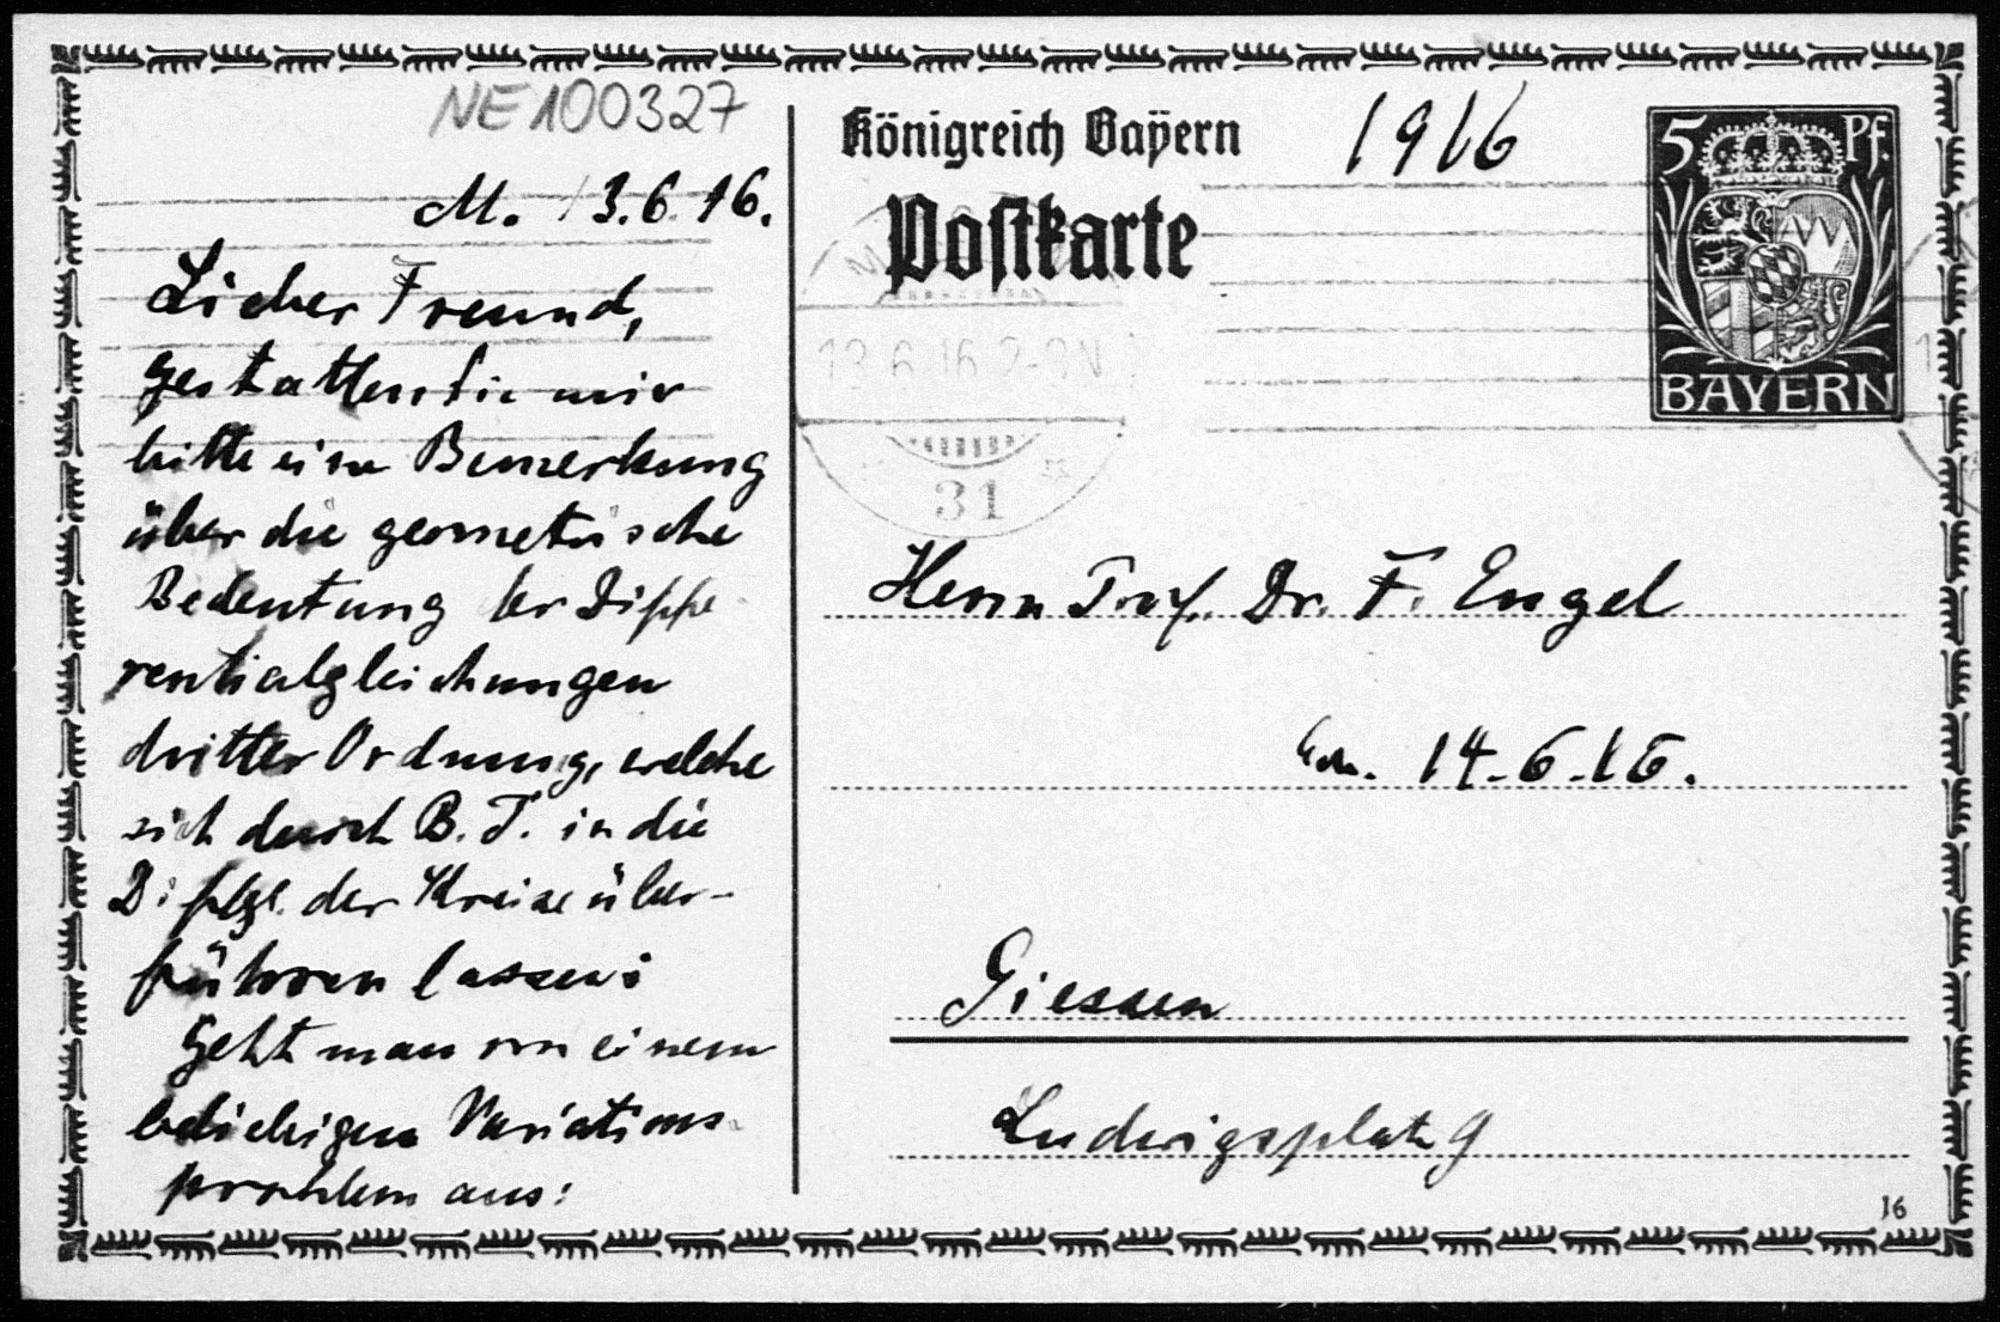 NE100327
M. 13.6.16.
Lieber Freund,
gestatten Sie mir
bitte eine Bemerkung
über die geometrische
Bedeutung der Diffe-
rentialgleichungen
dritter Ordnung, welche
sich durch B. T. in die
Diffgl. der Kreise über-
führen lassen:
Geht man von einem
beliebigen Variations-
problem aus:
Königreich Bayern
1916
Postkarte
5 Pf.
BAYERN
13.6.16 2-3N
31
Herrn Prof. Dr. F. Engel
14.6.16.
Giessen
Ludwigsplatz 9
16